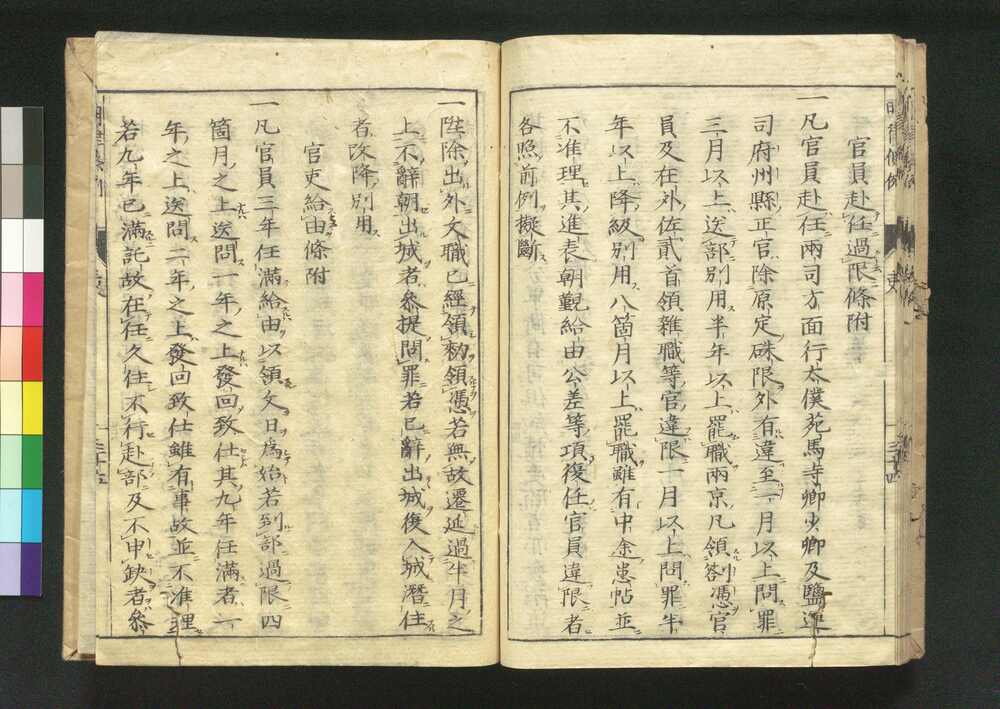 官員赴任過限條附
一凡官員赴任兩司方面行太僕苑馬寺卿少卿及鹽運
司府州縣正官除原定硃限外有違至一月以上問罪
三月以上送部別用半年以上罷職兩京凡領劄憑官
員及在外佐貳首領雜職等官違限一月以上問罪半
年以上降級別用八箇月以上罷職雖有中途患帖並
不准理其進表朝覲給由公差等項復任官員違限者
各照前例擬斷
一陞除出外文職已經領勑領憑若無故遷延過半月之
上不辭朝出城者參提問罪若已辭出城復入城潛住
者改降別用
官吏給由條附
一凡官員三年任滿給由以領文日為始若到部過限四
箇月之上送問一年之上發回致仕其九年任滿者一
年之上送問二年之上發回致仕雖有事故並不准理
若九年已滿託故在任久住不行赴部及不申缺者參